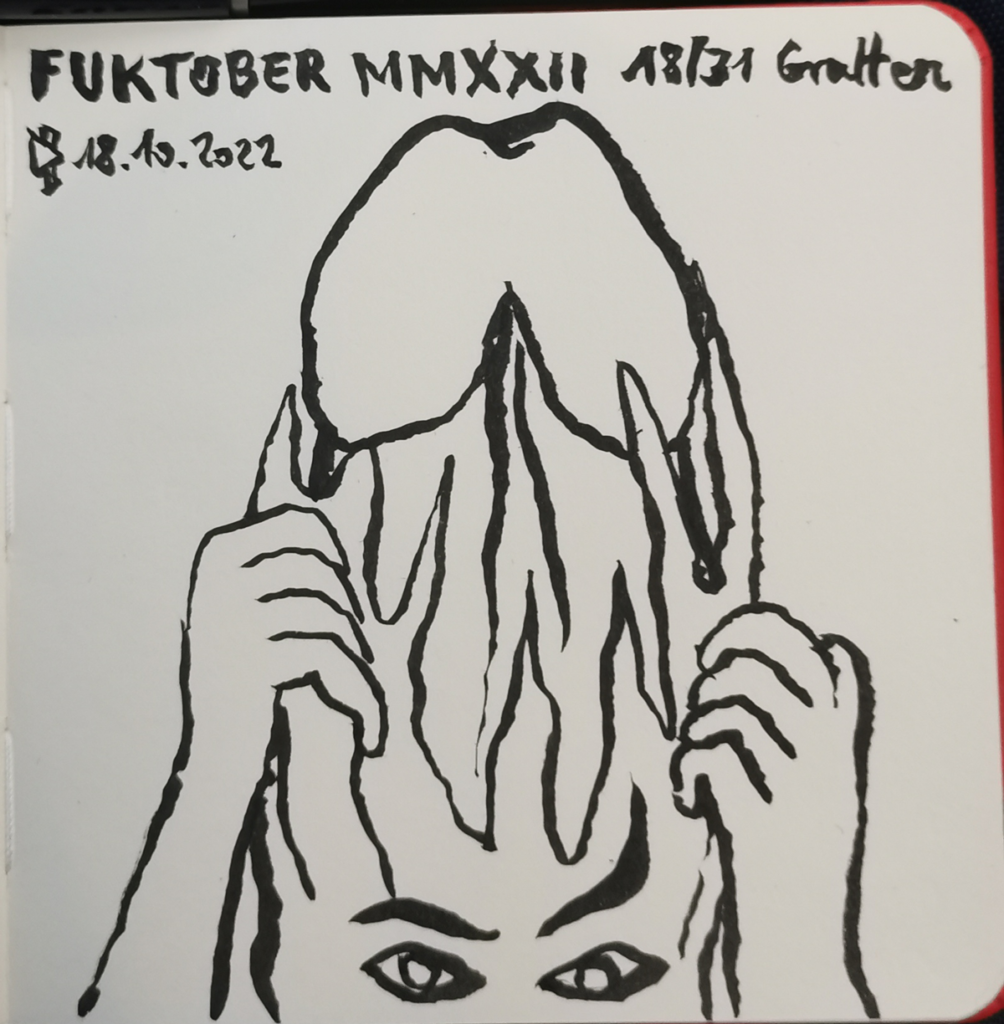 FUKTOBER MMXXII 18/31 Gratter
18.10.2022